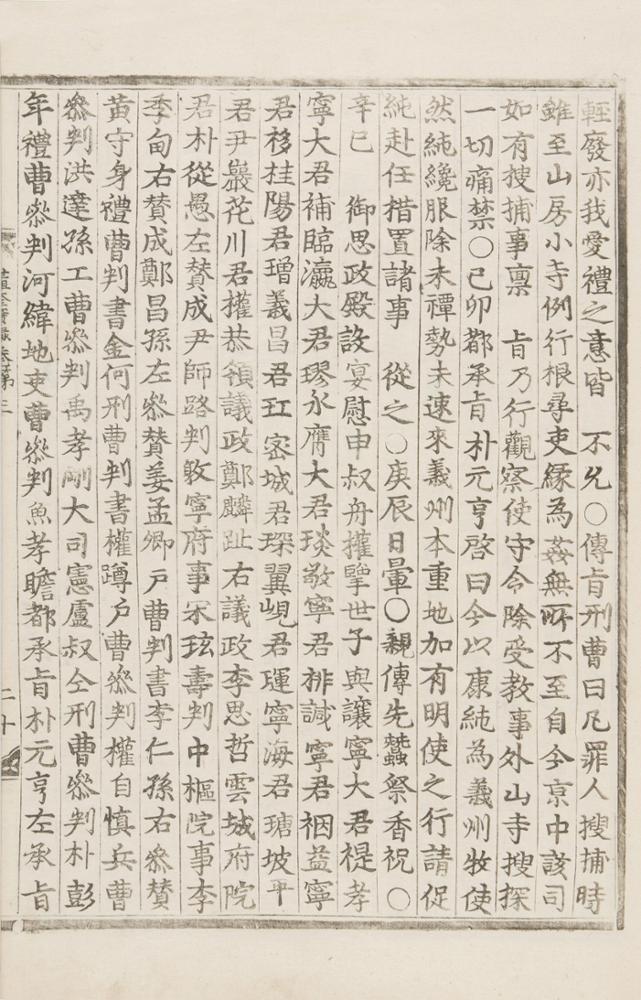 輕廢亦我愛禮之意皆 不允○傳旨刑曹曰凡罪人搜捕時
雖至山房小寺例行根尋吏緣爲姦無所不至自今京中該司
如有搜捕事稟 旨乃行觀察使守令除受教事外山寺搜探
一切痛禁○己卯都承旨朴元亨啓曰今以康純爲義州牧使
然純纔服除未禫勢未速來義州本重地加有明使之行請促
純赴任措置諸事 從之○庚辰日暈○親傳先蠶祭香祝○
辛巳 御思政殿設宴慰申叔舟權擥世子與讓寧大君禔孝
寧大君補臨瀛大君璆永膺大君琰敬寧君裶諴寧君裀益寧
君袳桂陽君璔義昌君玒密城君琛翼峴君璭寧海君瑭坡平
君尹巖花川君權恭領議政鄭麟趾右議政李思哲雲城府院
君朴從愚左贊成尹師路判敦寧府事宋玹壽判中樞院事李
季甸右贊成鄭昌孫左參贊姜孟卿戶曹判書李仁孫右參贊
黃守身禮曹判書金何刑曹判書權蹲戶曹參判權自愼兵曹
參判洪達孫工曹參判禹孝剛大司憲盧叔仝刑曹參判朴彭
年禮曹參判河緯地吏曹參判魚孝瞻都承旨朴元亨左承旨
二十